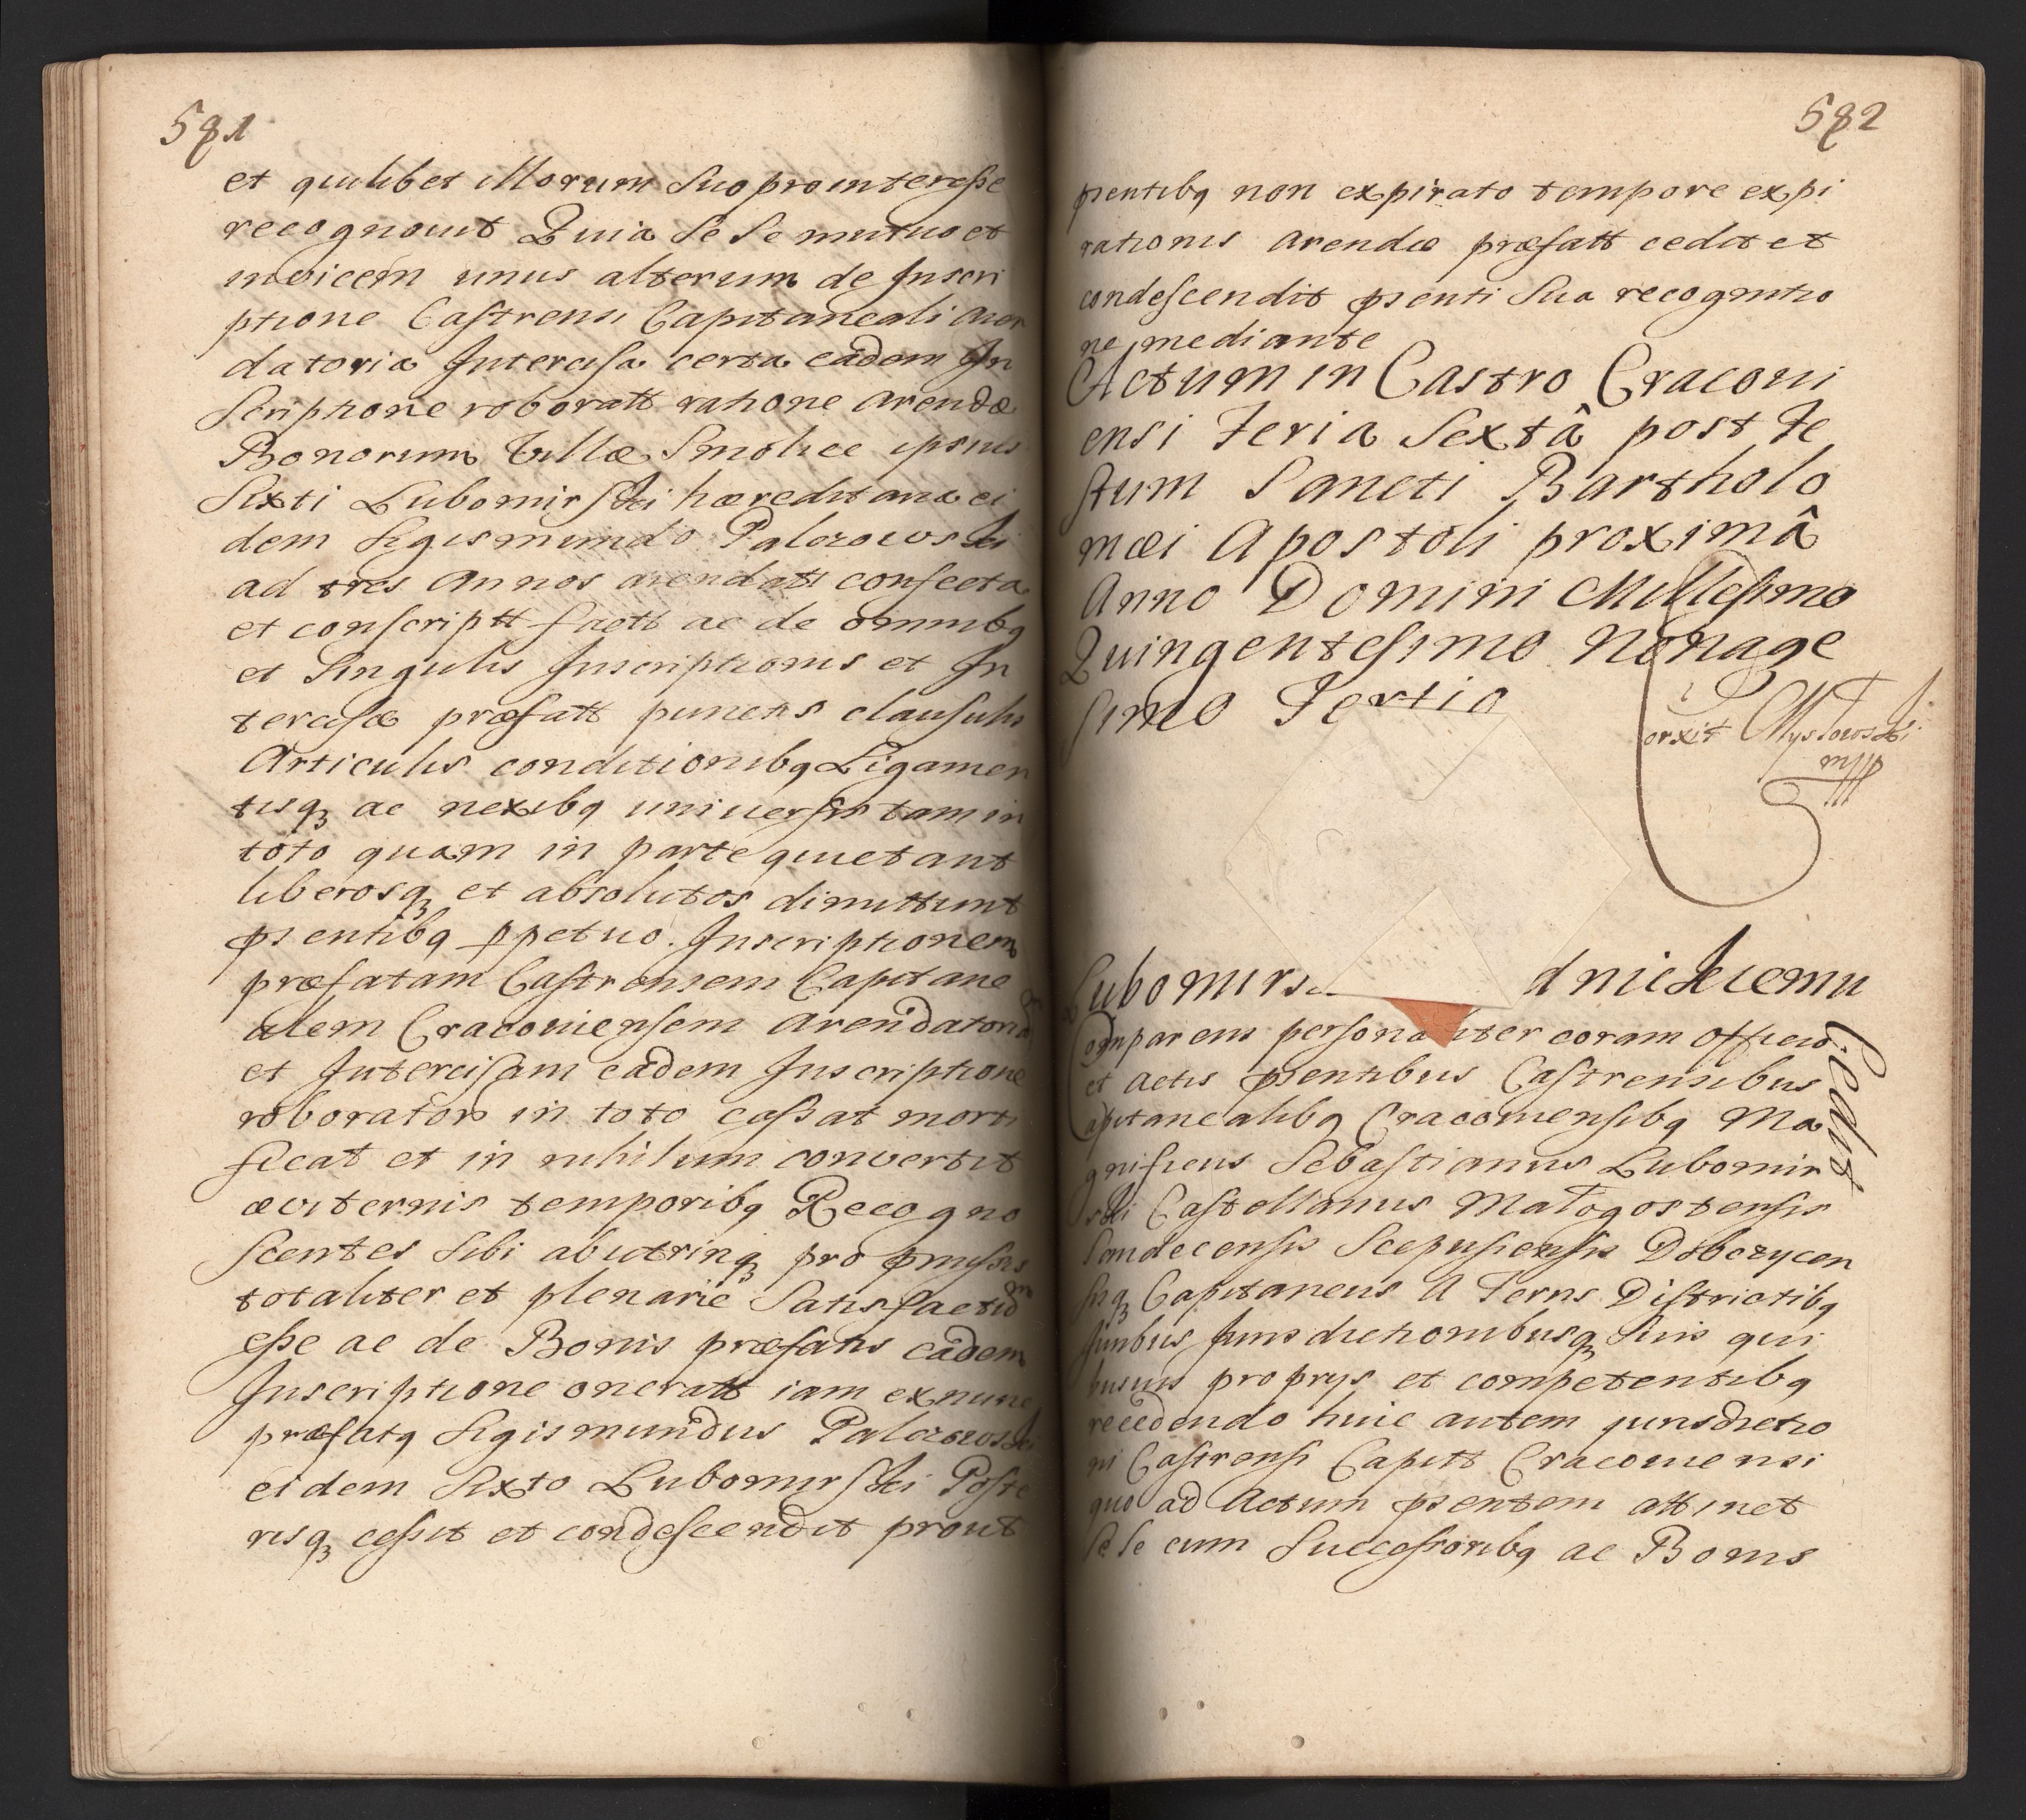 581
et quilibet illorum Suo prointeresse
recognovit Quia Se Se mutuo et
invicem unus alterum de Inscri
ptione Castrensi Capitaneali Aren
datoria Intercisa certa eadem In
Scriptione roboratt ratione arendæ
Bonorum Villæ Smolice ipsius
Sixti Lubomirski hæreditariæ ei
dem Sigismundo Palczowski
ad tres Annos arendatt confecta
et conscriptt factt ac de omnibq
et Singulis Inscriptionis et In
tercisæ præfatt punctis clausulis
Articulis conditionibq Ligamen
tisq ac nexibq universis tam in
toto quam in parte quietant
liberosq et absolutos dimittunt
pñtibq ppetuo. Inscriptionem
præfatam Castrensem Capitane
alem Cracoviensem Arendatoria
et Intercisam eadem Inscriptione
roborator in toto cassat morti
ficat et in nihilum convertit
æviternis temporibq Recogno
Scentes Sibi abutrinq pro pmissis
totaliter et plenarie Satisfactũ
esse ac de Bonis præfatis eadem
Inscriptione oneratt iam ex nunc
præfatq Sigismundus Palczowski
eidem Sixto Lubomirski Poste
risq cessit et condescendit prout
582
psentibq non expirato tempore expi
rationis Arendæ præfatt cedit et
condescendit psenti Sua recognitio
ne mediante
Actum in Castro Cracovi
ensi Feria Sextâ post Fe
stum Sancti Bartholo
mæi Apostoli proximâ
Anno Domini Millesimo
Quingentesimo Nonage
simo Tertio
orxit Mysłowski
mpp
Lubomirs dnickiemu
Comparens personaliter coram Officio
et Actis psentibus Castrensibus
Capitanealibq Cracoviensibq Ma
gnificus Sebastianus Lubomir
ski Castellanus Małogostensis
Sandecensis Scepusiensis Dobczycen
sisq Capitaneus A Terris Districtibq
Juribus Jurisdictionibusq Suis qui
busvis proprys et competentibq
recedendo huic autem jurisdictio
ni Castrensi Capitt Cracoviensi
quo ad Actum psentem attinet
Se Se cum Successoribq ac Bonis
Cedit